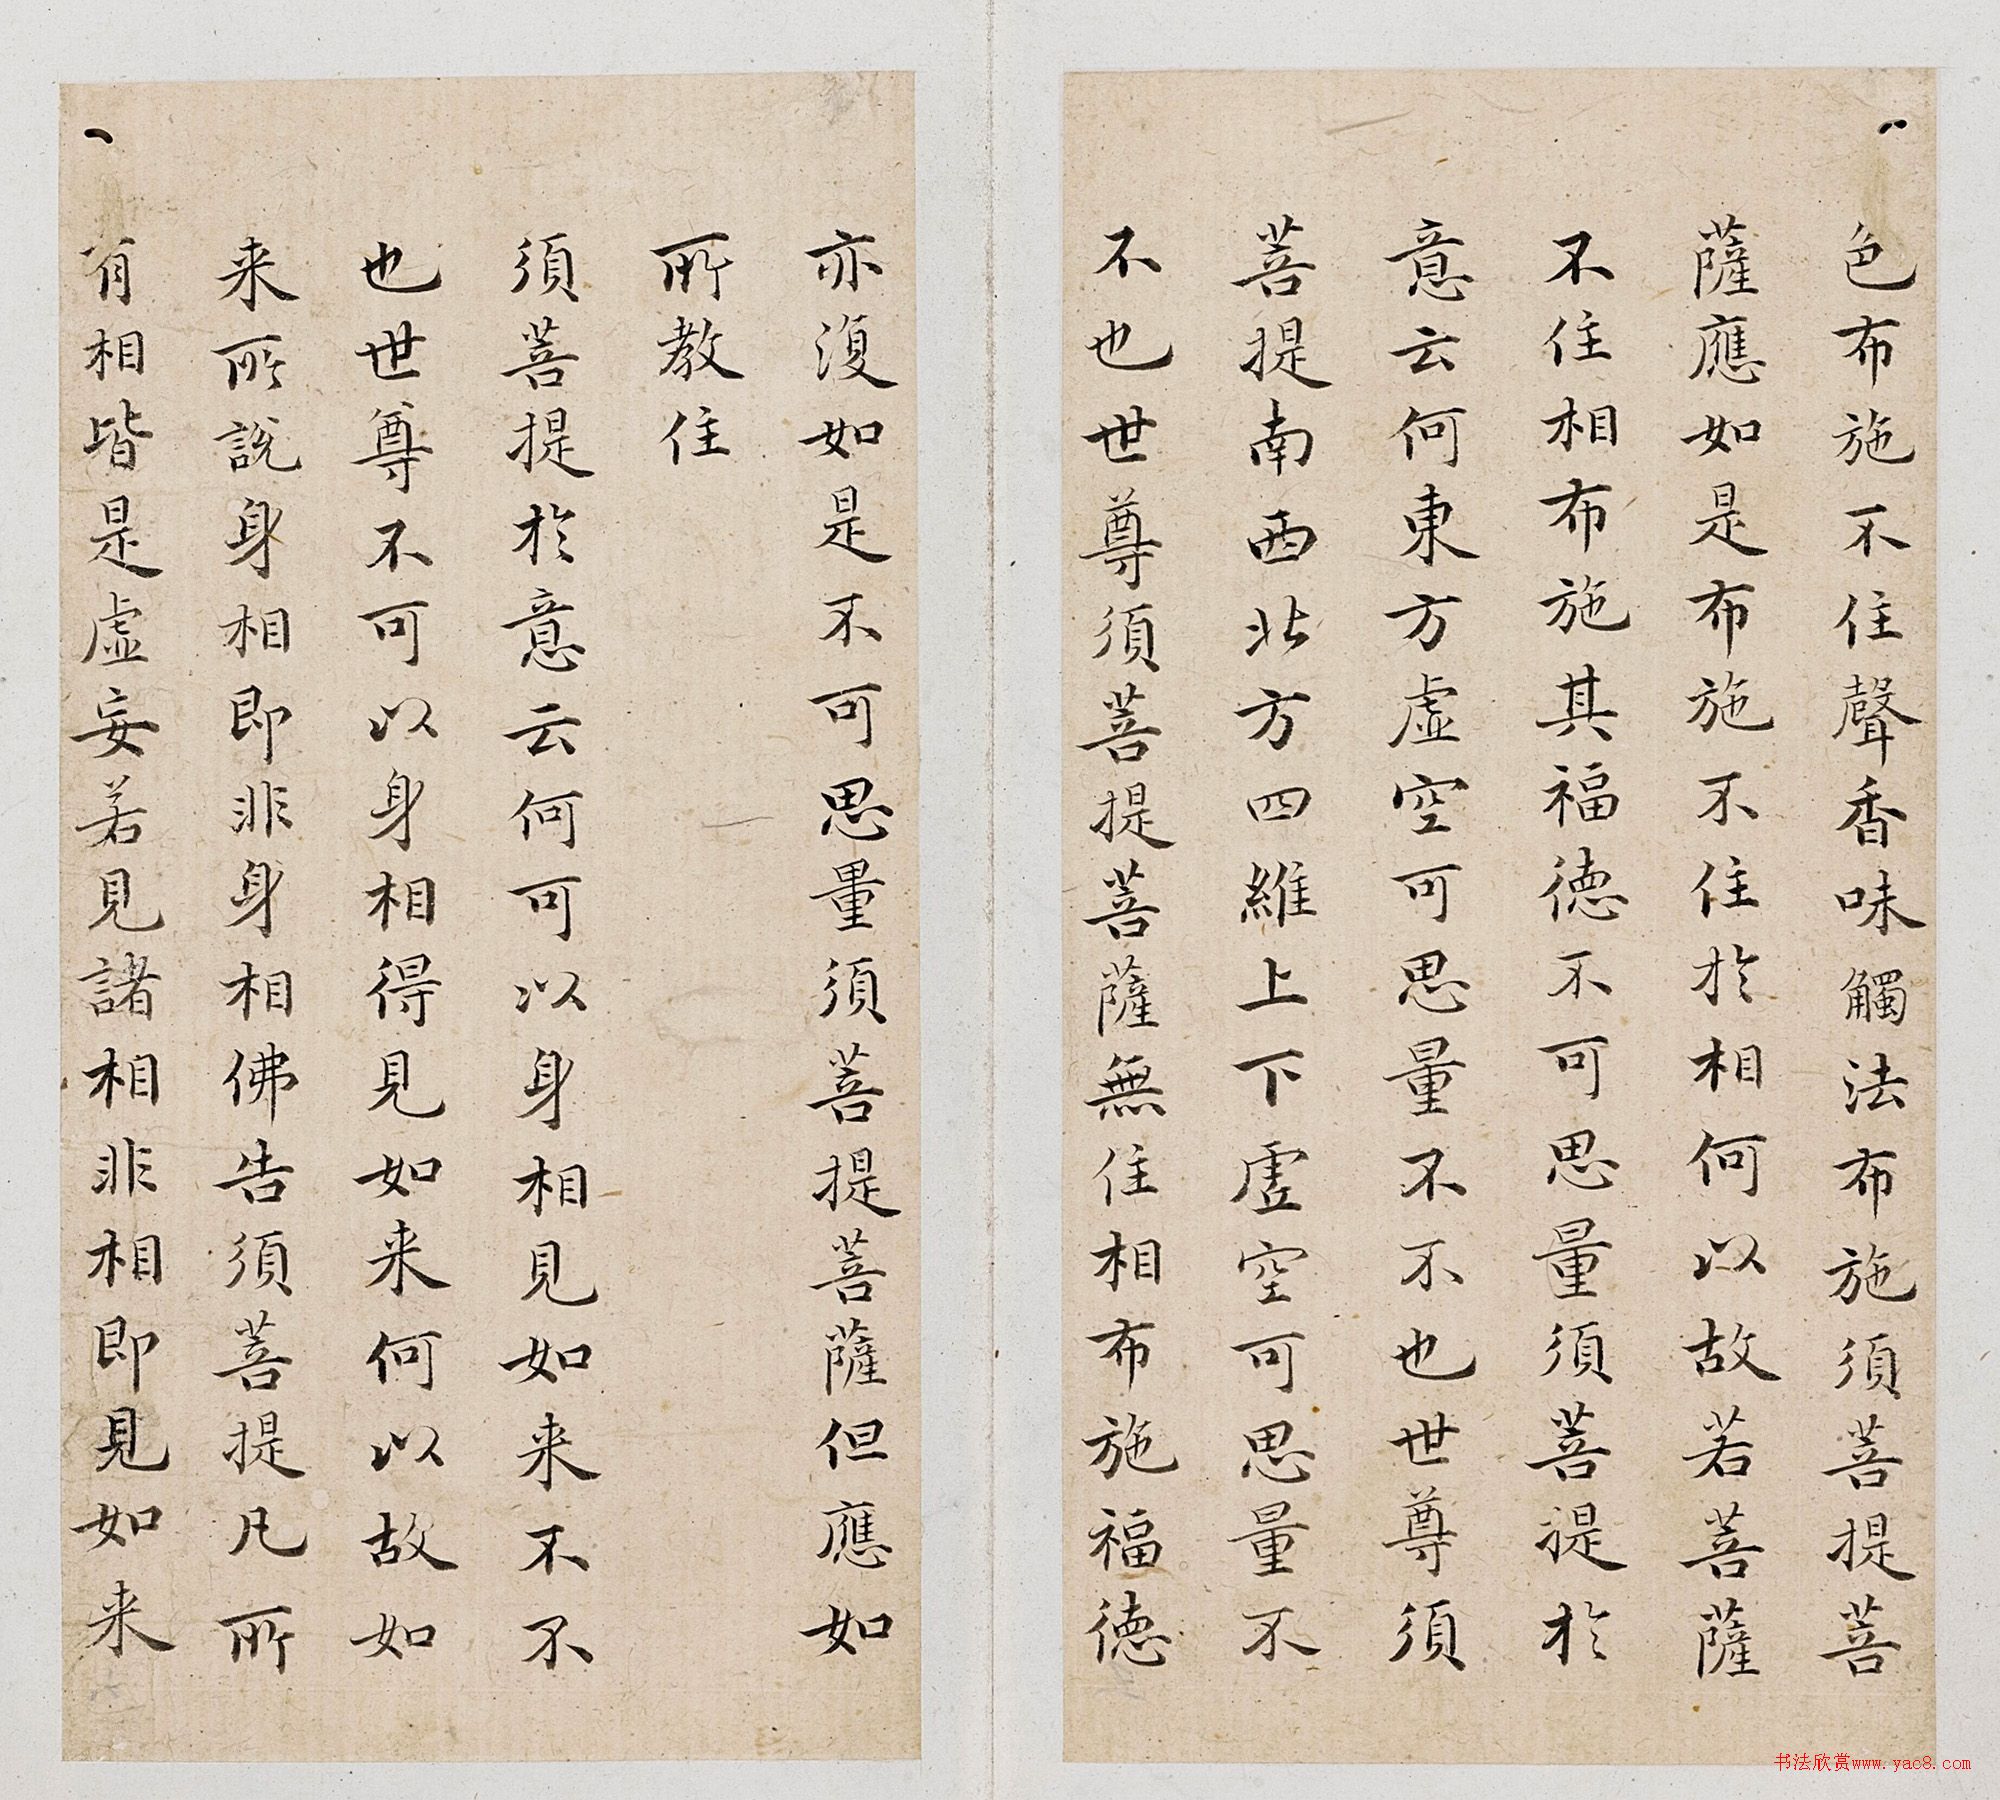 色布施不住聲香味觸法布施須菩提菩
薩應如是布施不住於相何以故若菩薩
不住相布施其福德不可思量須菩提於
意云何東方虛空可思量不不也世尊須
菩提南西北方四維上下虛空可思量不
不也世尊須菩提菩薩無住相布施福德
亦復如是不可思量須菩提菩薩但應如
所教住
須菩提於意云何可以身相見如来不不
也世尊不可以身相得見如来何以故如
来所說身相即非身相佛告須菩提凡所
有相皆是虛妄若見諸相非相即見如来
书法欣赏www.yac8.com